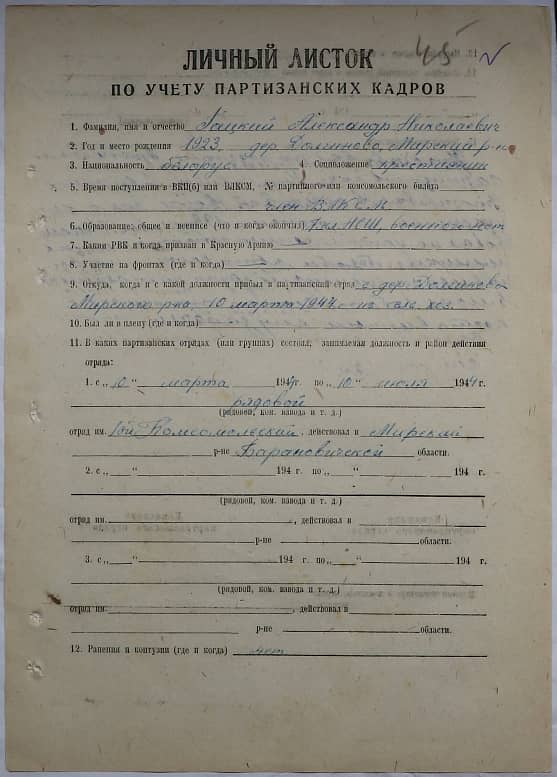 45 ✓
ЛИЧНЫЙ ЛИСТОК
ПО УЧЕТУ ПАРТИЗАНСКИХ КАДРОВ
1. Фамилия, имя и отчество Гацкий Александр Николаевич
2. Год и место рождения 1923, дер. Долиново, Мирский р-н
3. Национальность белорус 4. Соцположение крестьянин
5. Время поступления в ВКП(б) или ВЛКСМ, № партийного или комсомольского билета
член ВЛКСМ
6. Образование: общее и военное (что и когда окончил) 7 кл. НСШ, военного нет
7. Каким РВК и когда призван в Красную Армию
8. Участие на фронтах (где и когда)
9. Откуда, когда и с какой должности прибыл в партизанский отряд с дер. Долиново
Мирского р-на, 10 марта 1944 г. из сел. хоз.
10. Был ли в плену (где и когда)
11. В каких партизанских отрядах (или группах) состоял, занимаемая должность и район действия
отряда:
1. с „10“ марта 1944 г. по „10“ июля 1944 г.
рядовой
(рядовой, ком. взвода и т. д.)
отряд им. 1ой Комсомольский, действовал в Мирский
р-не Барановичской области.
2. с „ “ 194 г. по „ “ 194 г.
(рядовой, ком. взвода и т. д.)
отряд им. , действовал в
р-не области.
3. с „ “ 194 г. по „ “ 194 г.
(рядовой, ком. взвода и т. д.)
отряд им. , действовал в
р-не области.
12. Ранения и контузии (где и когда) нет